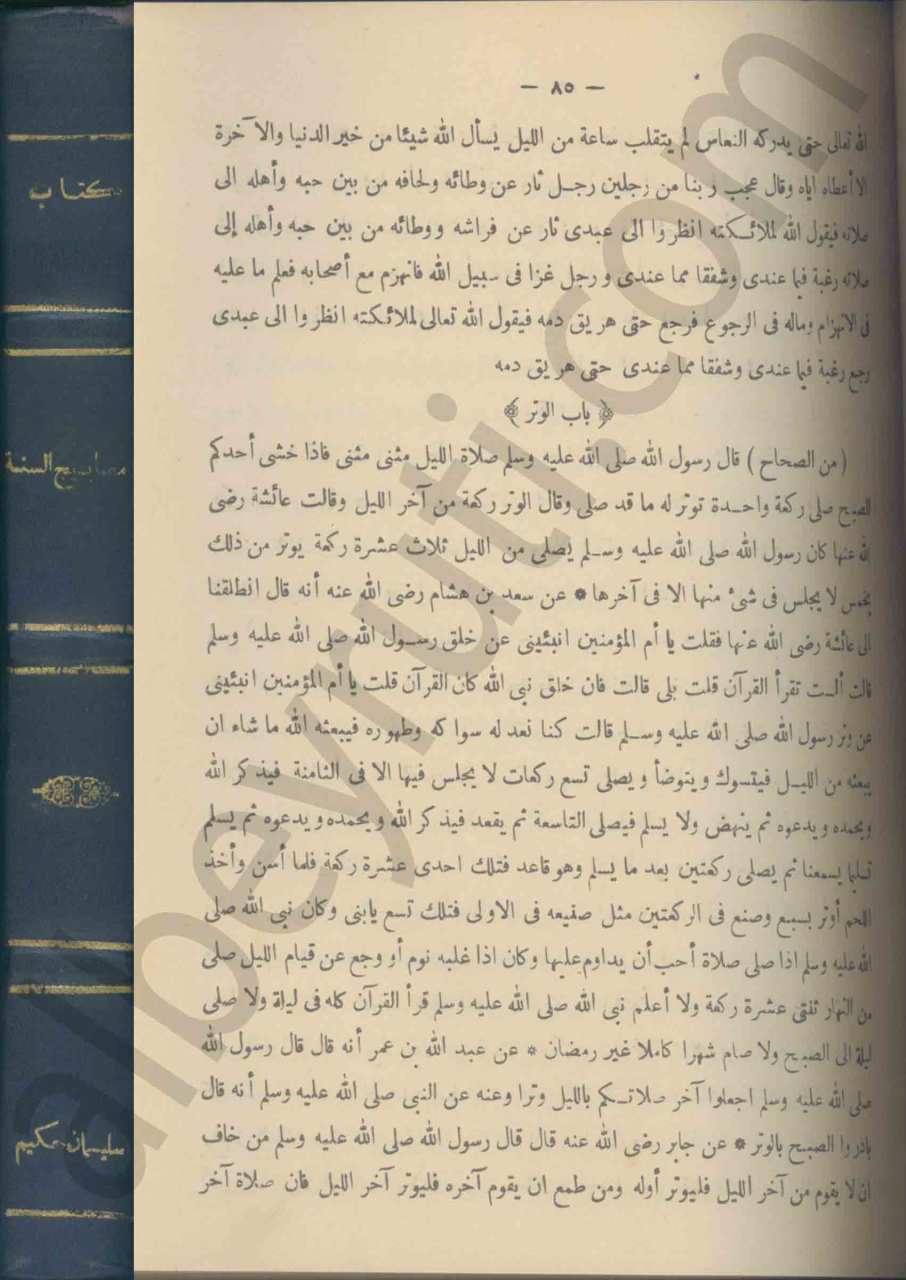 كتاب
مصابيح السنة
سليمان حكيم
— ٨٥ —
الله تعالى حتى يدركه النعاس لم يتقلب ساعة من الليل يسأل الله شيئا من خير الدنيا والآخرة
الا أعطاه اياه وقال عجب ربنا من رجلين رجل ثار عن وطائه ولحافه من بين حبه وأهله الى
صلاته فيقول الله لملائكته انظروا الى عبدى ثار عن فراشه ووطائه من بين حبه وأهله إلى
صلاته رغبة فيما عندى وشفقا مما عندى ورجل غزا فى سبيل الله فانهزم مع أصحابه فعلم ما عليه
فى الانهزام وماله فى الرجوع فرجع حتى هريق دمه فيقول الله تعالى لملائكته انظروا الى عبدى
رجع رغبة فيما عندى وشفقا مما عندى حتى هريق دمه
﴿ باب الوتر ﴾
(من الصحاح) قال رسول الله صلى الله عليه وسلم صلاة الليل مثنى مثنى فاذا خشى أحدكم
الصبح صلى ركعة واحدة توتر له ما قد صلى وقال الوتر ركعة من آخر الليل وقالت عائشة رضى
الله عنها كان رسول الله صلى الله عليه وسلم يصلى من الليل ثلاث عشرة ركعة يوتر من ذلك
بخمس لا يجلس فى شئ منها الا فى آخرها * عن سعد بن هشام رضى الله عنه أنه قال انطلقنا
الى عائشة رضى الله عنها فقلت يا أم المؤمنين انبئينى عن خلق رسول الله صلى الله عليه وسلم
قالت ألست تقرأ القرآن قلت بلى قالت فان خلق نبى الله كان القرآن قلت يا أم المؤمنين انبئينى
عن وتر رسول الله صلى الله عليه وسلم قالت كنا نعد له سواكه وطهوره فيبعثه الله ما شاء ان
يبعثه من الليل فيتسوك ويتوضأ ويصلى تسع ركعات لا يجلس فيها الا فى الثامنة فيذكر الله
ويحمده ويدعوه ثم ينهض ولا يسلم فيصلى التاسعة ثم يقعد فيذكر الله ويحمده ويدعوه ثم يسلم
تسليما يسمعنا ثم يصلى ركعتين بعد ما يسلم وهو قاعد فتلك احدى عشرة ركعة فلما أسن وأخذ
اللحم أوتر بسبع وصنع فى الركعتين مثل صنيعه فى الاولى فتلك تسع يابنى وكان نبى الله صلى
الله عليه وسلم اذا صلى صلاة أحب أن يداوم عليها وكان اذا غلبه نوم أو وجع عن قيام الليل صلى
من النهار ثنتى عشرة ركعة ولا أعلم نبى الله صلى الله عليه وسلم قرأ القرآن كله فى ليلة ولا صلى
ليلة الى الصبح ولا صام شهرا كاملا غير رمضان * عن عبد الله بن عمر أنه قال قال رسول الله
صلى الله عليه وسلم اجعلوا آخر صلاتكم بالليل وترا وعنه عن النبى صلى الله عليه وسلم أنه قال
بادروا الصبح بالوتر * عن جابر رضى الله عنه قال قال رسول الله صلى الله عليه وسلم من خاف
ان لا يقوم من آخر الليل فليوتر أوله ومن طمع ان يقوم آخره فليوتر آخر الليل فان صلاة آخر
albeyruti.com